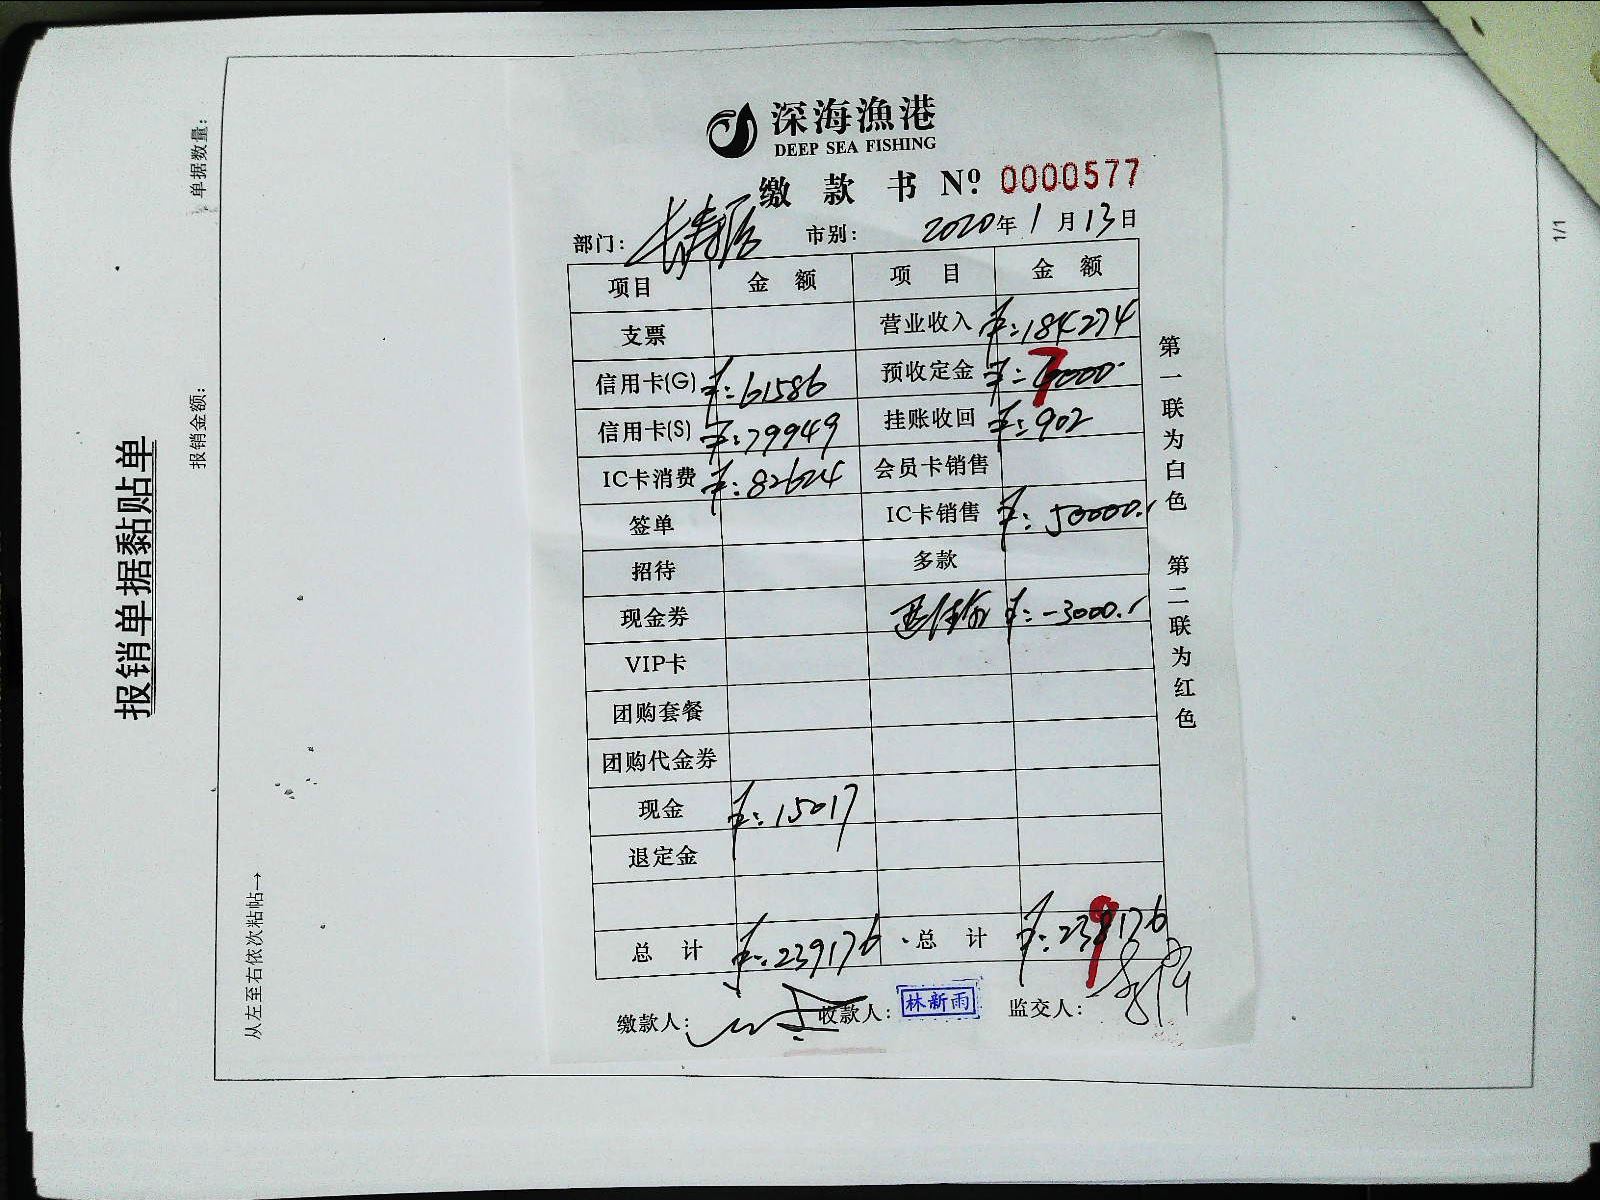 深海漁港
DEEP SEA FISHING
缴款书 Nº 0000577
部门: 市别: 2020年1月13日
项目 金额 项目 金额
支票 营业收入 ¥:184274
信用卡(G) ¥:61586 预收定金 ¥:7000.
信用卡(S) ¥:79949 挂账收回 ¥:902
IC卡消费 ¥:82624 会员卡销售
签单 IC卡销售 ¥:50000.
招待 多款
现金券 ¥:-3000.
VIP卡
团购套餐
团购代金券
现金 ¥:15017
退定金
总计 ¥:239176 总计 ¥:239176
缴款人: 收款人: 林新雨 监交人:
第一联为白色 第二联为红色
报销单据黏贴单
报销金额: 单据数量:
从左至右依次粘帖→
1/1